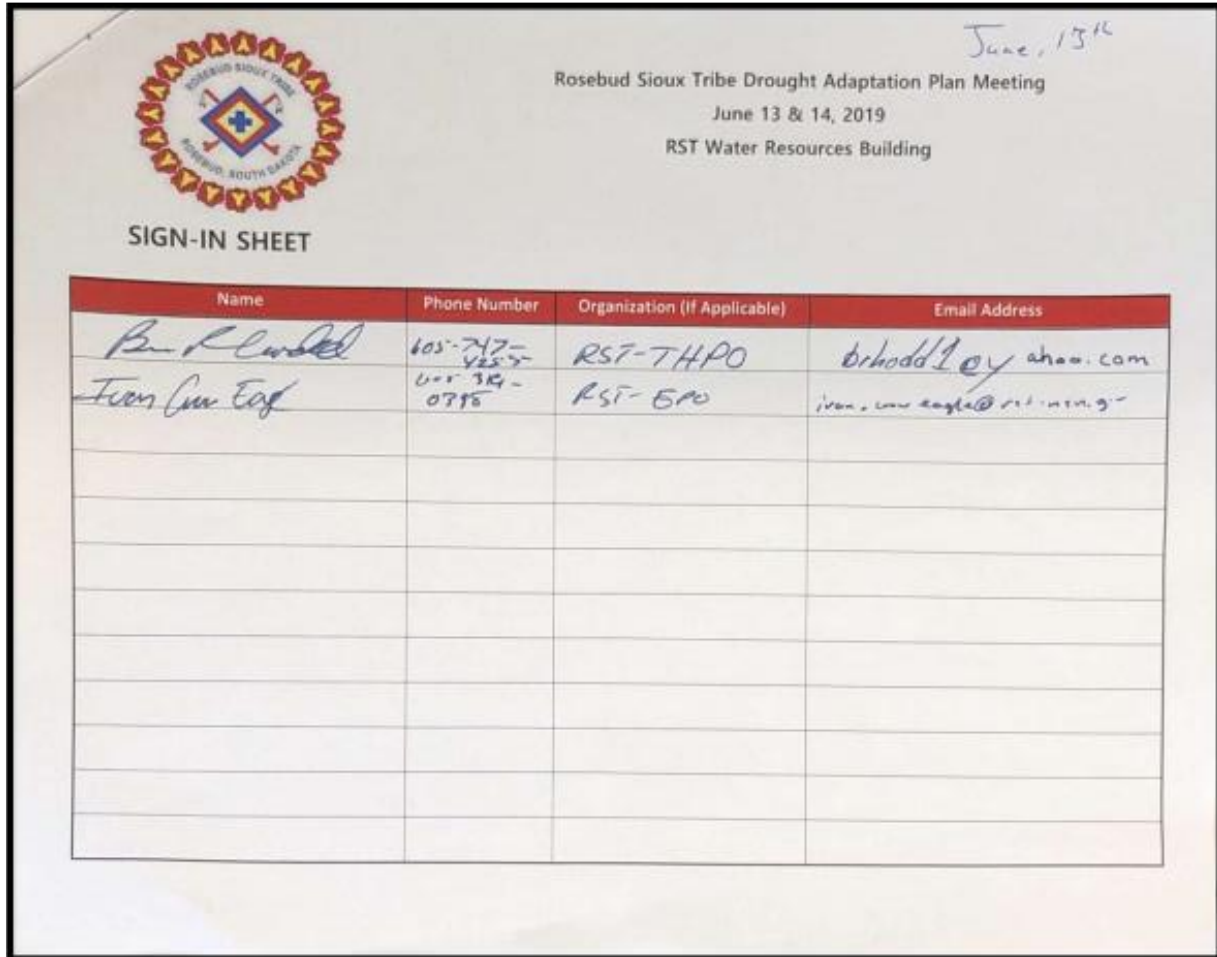 June, 13th
ROSEBUD SIOUX TRIBE
ROSEBUD, SOUTH DAKOTA
Rosebud Sioux Tribe Drought Adaptation Plan Meeting
June 13 & 14, 2019
RST Water Resources Building
SIGN-IN SHEET
Name Phone Number Organization (If Applicable) Email Address
605-747-
RST-THPO brhodd1@yahoo.com
Ivan
RST-EPO